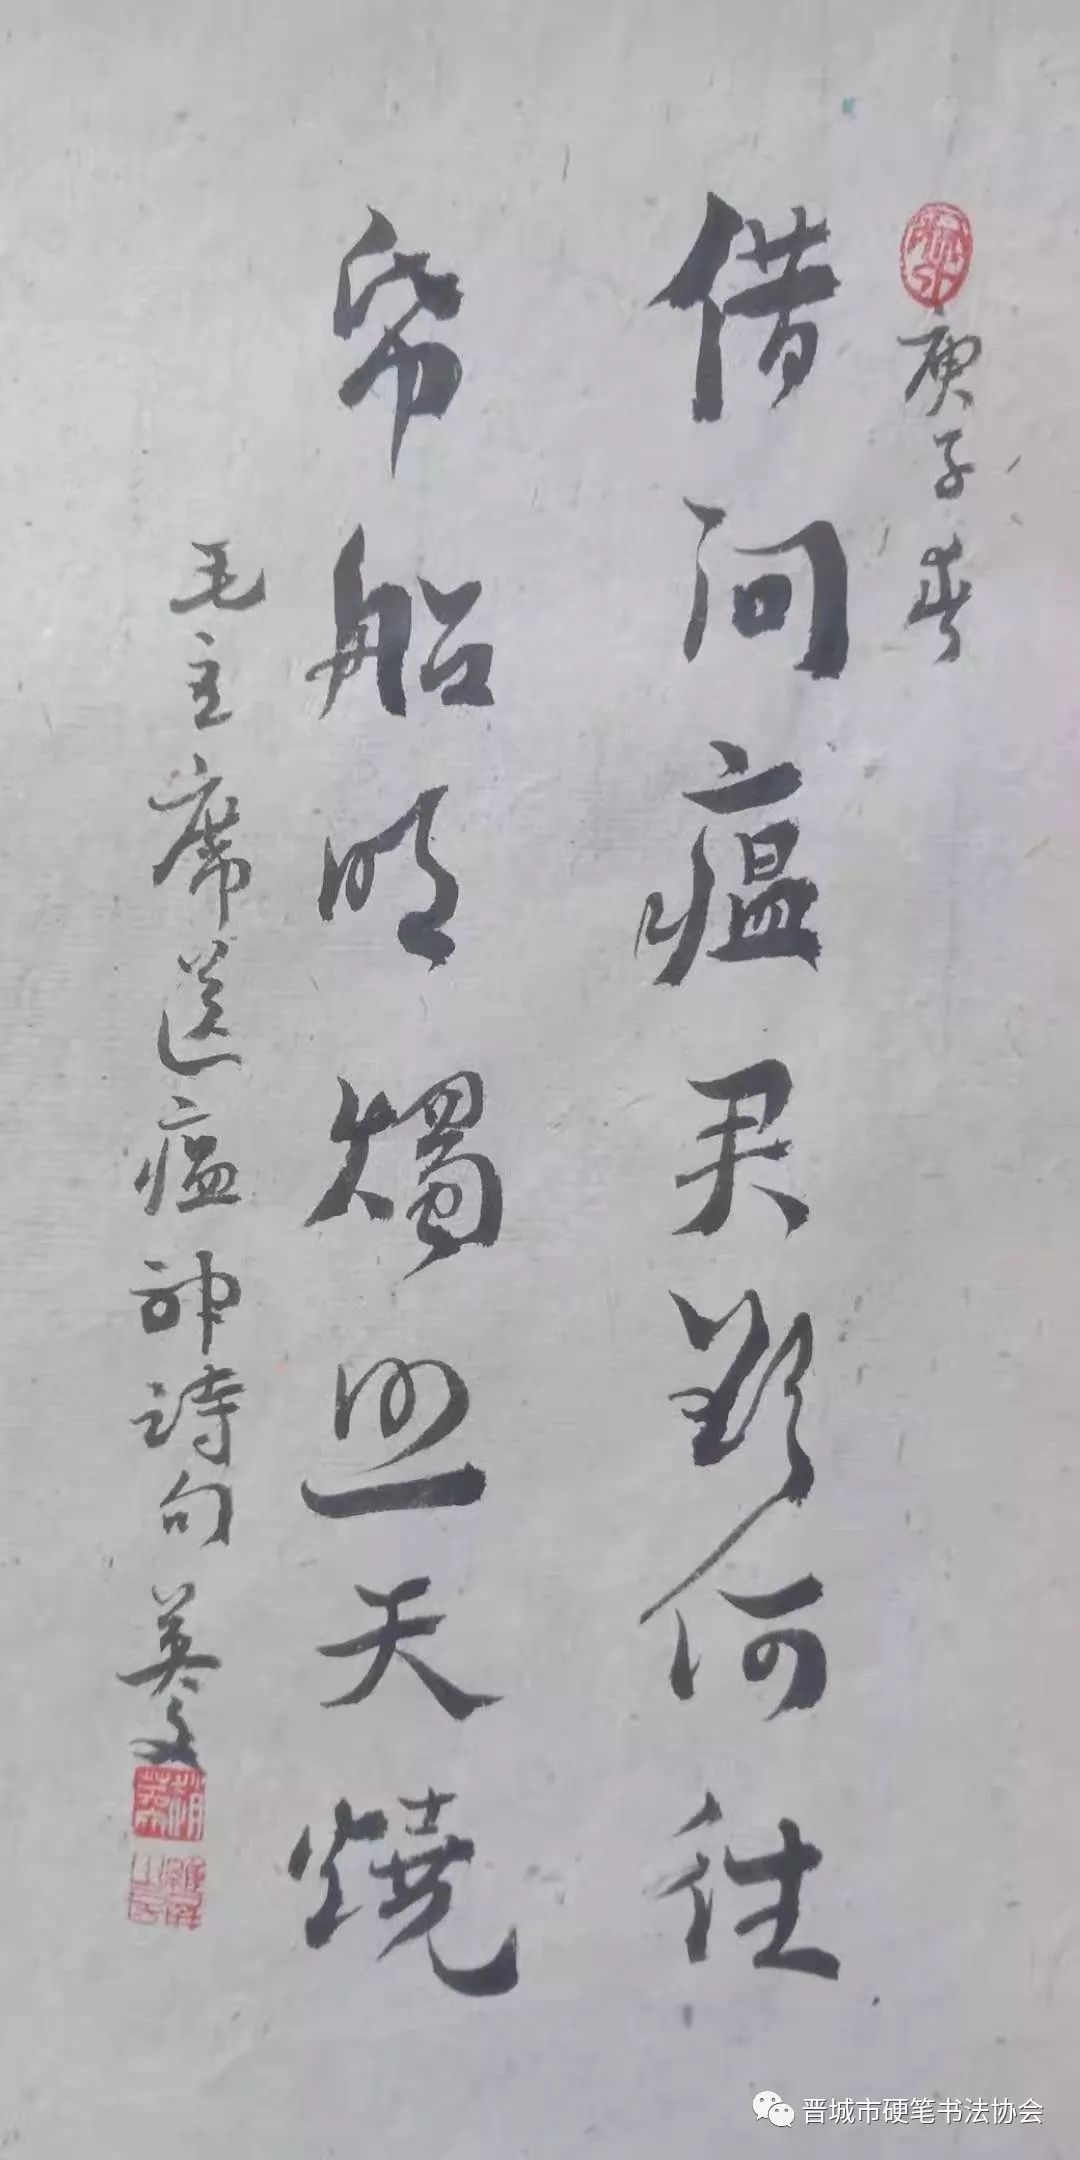 庚子春
借问瘟君欲何往
纸船明烛照天烧
毛主席送瘟神诗句 英文
晋城市硬笔书法协会